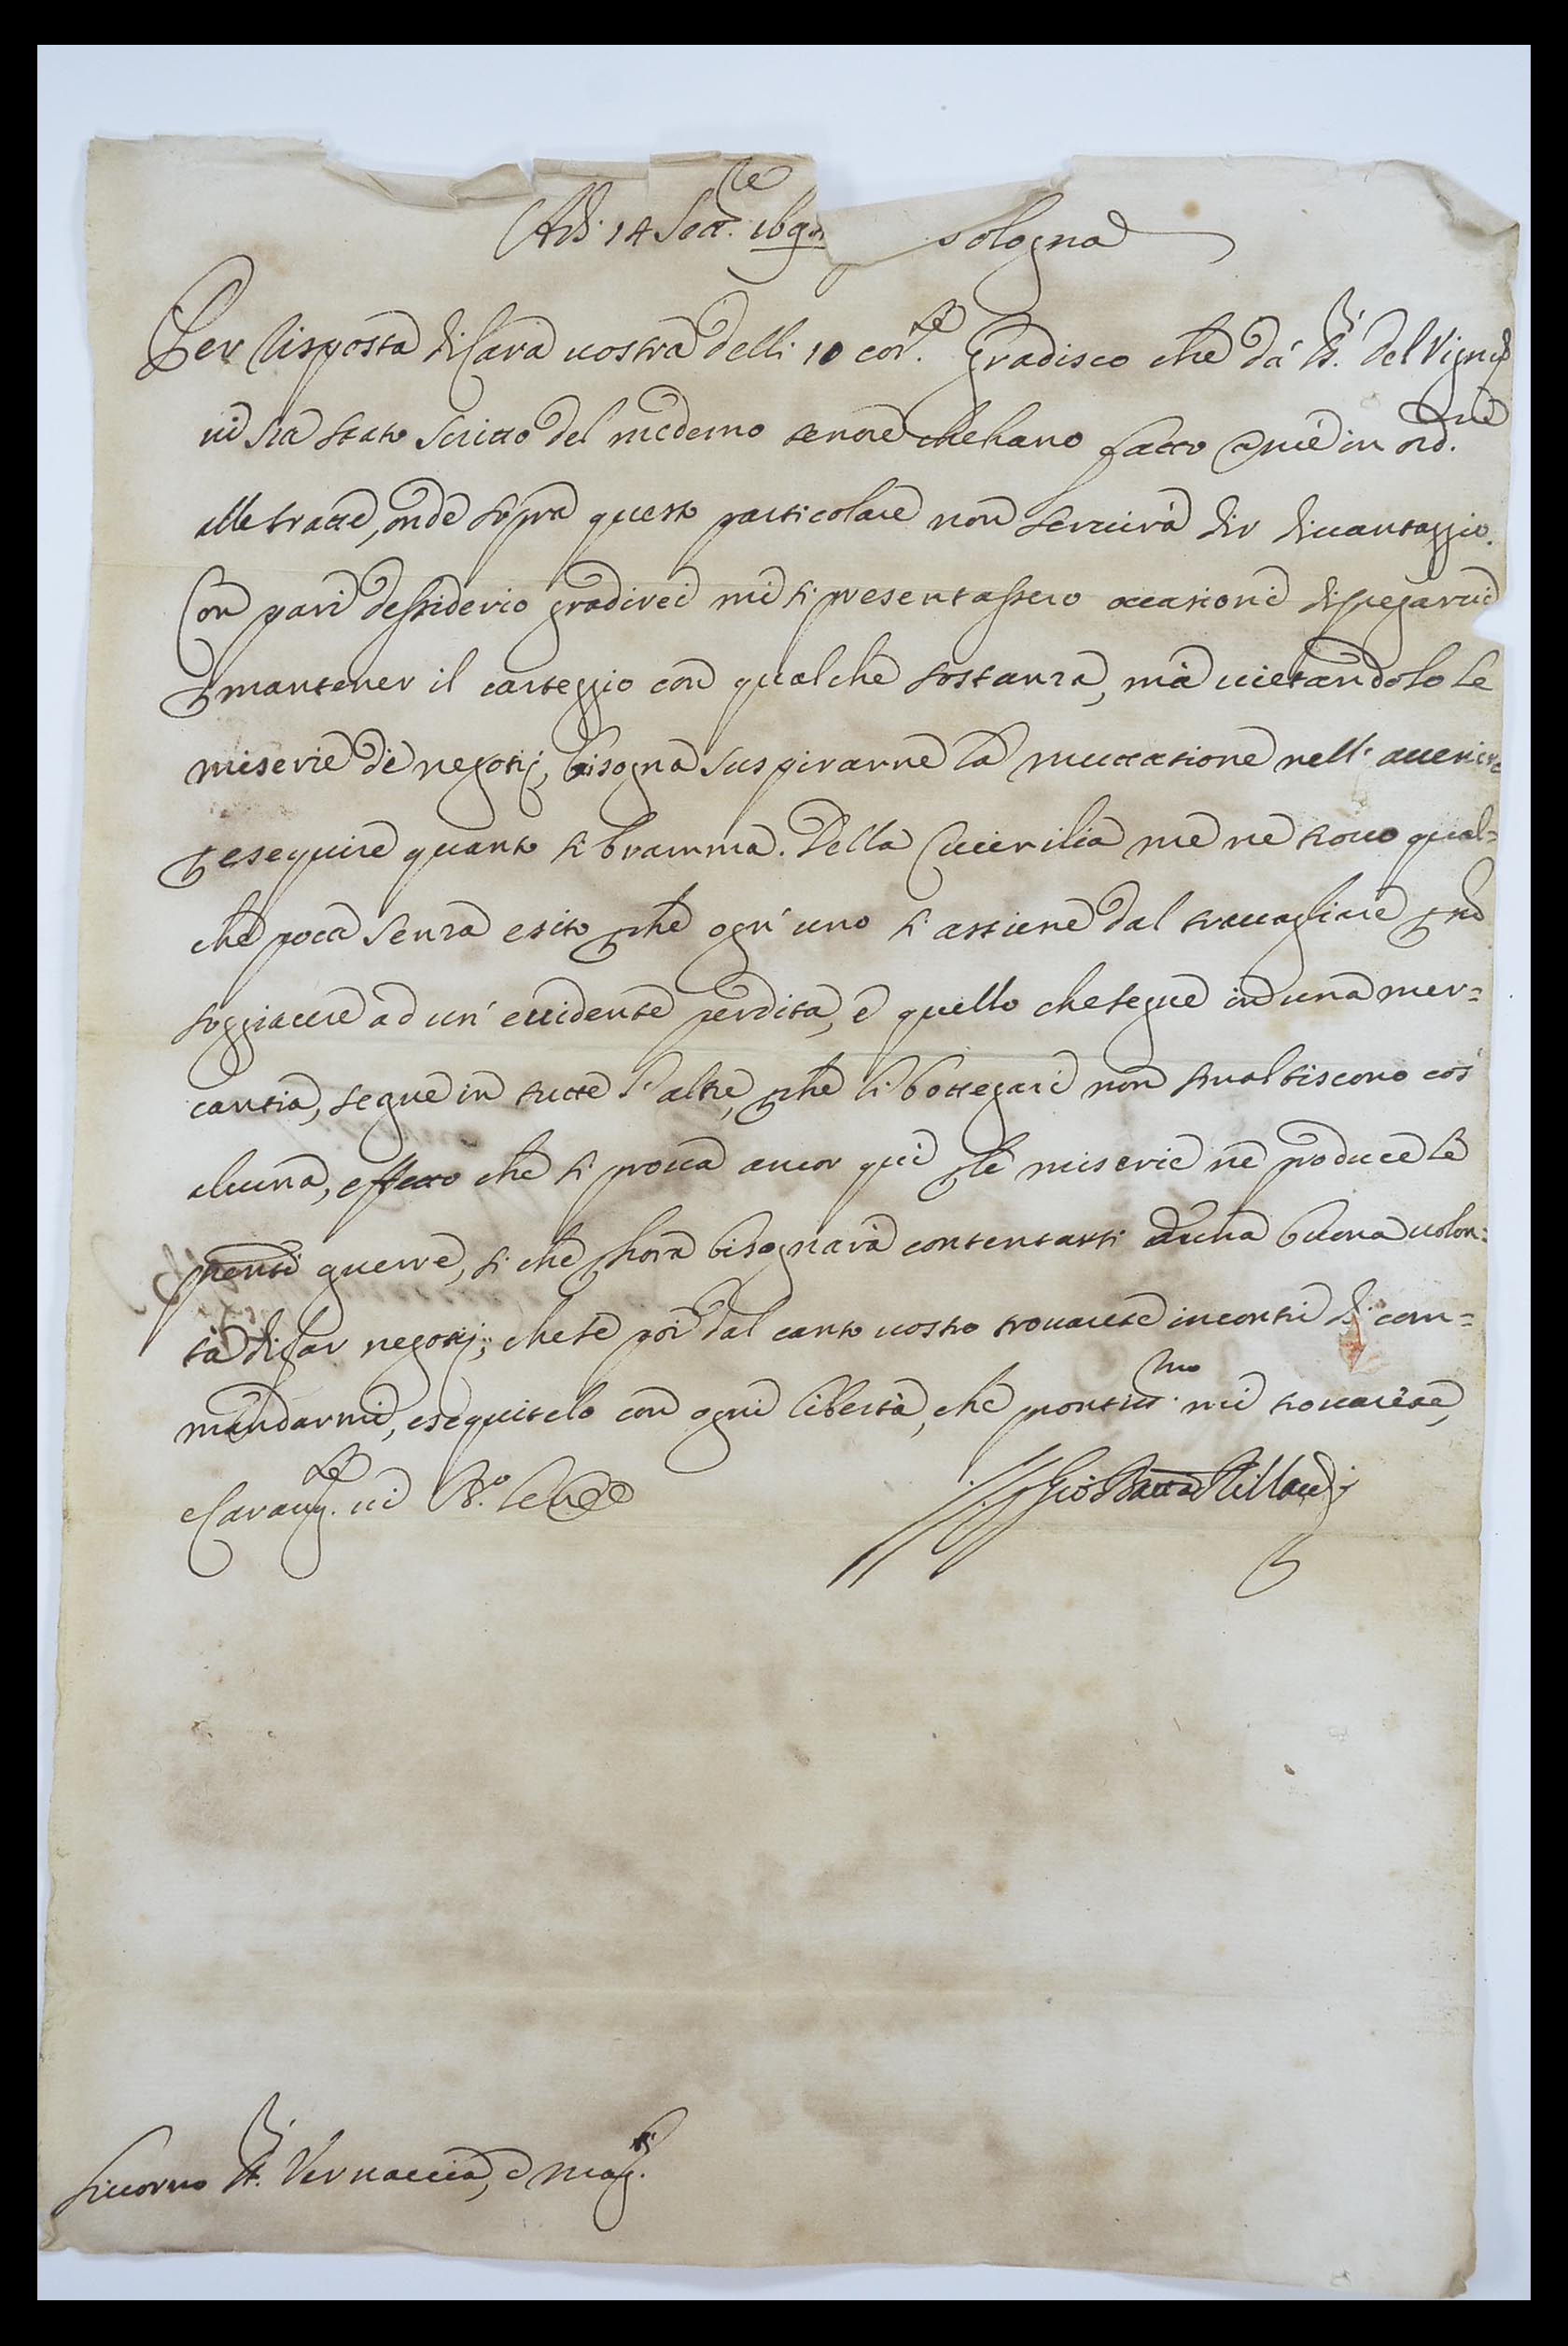 Adi 14 Sett.re 169 Bologna
Per risposta di cara vostra delli 10 cor.te gradisco che dà SS.ri del Vigna
vi sia stato scritto del medemo tenore che hano fatto à me in ord.ne
alle tratte, onde sopra questo particolare non serverà dir di vantaggio.
Con pari dessiderio gradirei mi si presentassero occasioni d'impegarvi
p mantener il carteggio con qualche sostanza, mà vietandolo le
miserie de negotij, bisogna suspirarne la muttatione nell'avenire
p eseguire quanto si bramma. Della me ne trovo qual=
che poca senza esito, p che ogn'uno si astiene dal travagliare p no
soggiacere ad un'evidente perdita, e quello che segue in una mer=
cantia, segue in tutte l'altre, p che li bottegari non smaltiscono cos
alcuna, effetto che si prova ancor qui p le miserie ne produce le
p.senti guerre, si che p hora bisognarà contentarsi d'una buona volon=
tà di far negotij; che se poi dal canto vostro trovarete incontri di com=
mandarmi, eseguitelo con ogni libertà, che prontiss.mo mi trovarete,
e Caram.te vi
Gio Batta
Livorno SS.ri Vernaccia, e mag.